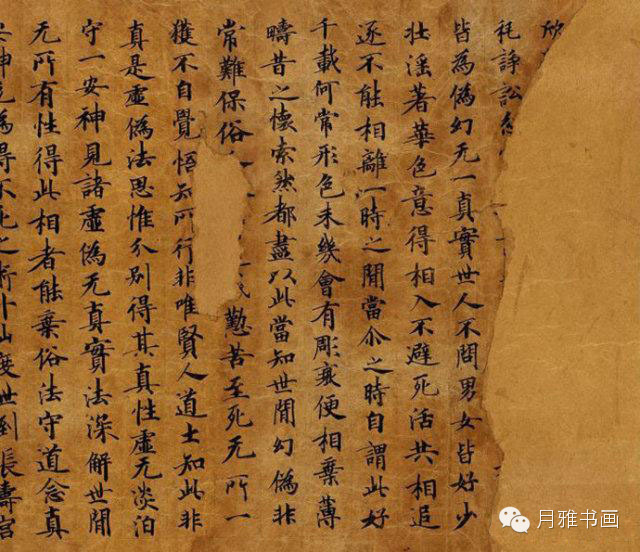 欣
秏諍訟
皆為偽幻无一真實世人不問男女皆好少
壯滛著華色意得相入不避死活共相追
逐不能相離一時之間當尒之時自謂此好
千載何常形色未幾會有彫衰便相棄薄
疇昔之懷索然都盡以此當知世間幻偽非
常難保俗懃苦至死无所一
獲不自覺悟知所行非唯賢人道士知此非
真是虛偽法思惟分別得其真性虛无淡泊
守一安神見諸虛偽无真實法深解世間
无所有性得此相者能棄俗法守道念真
神為得不死之術升仙度世到長壽宮
月雅书画